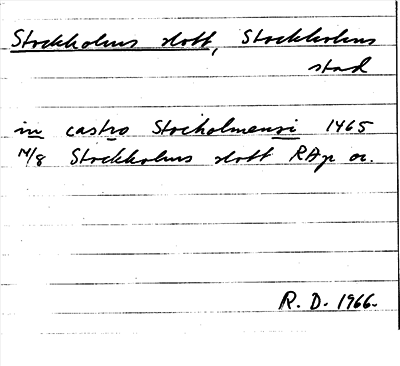 Stockholms slott, Stockholms
stad
in castro Stocholmensi 1465
14/8 Stockholms slott RAp or.
R. D. 1966.